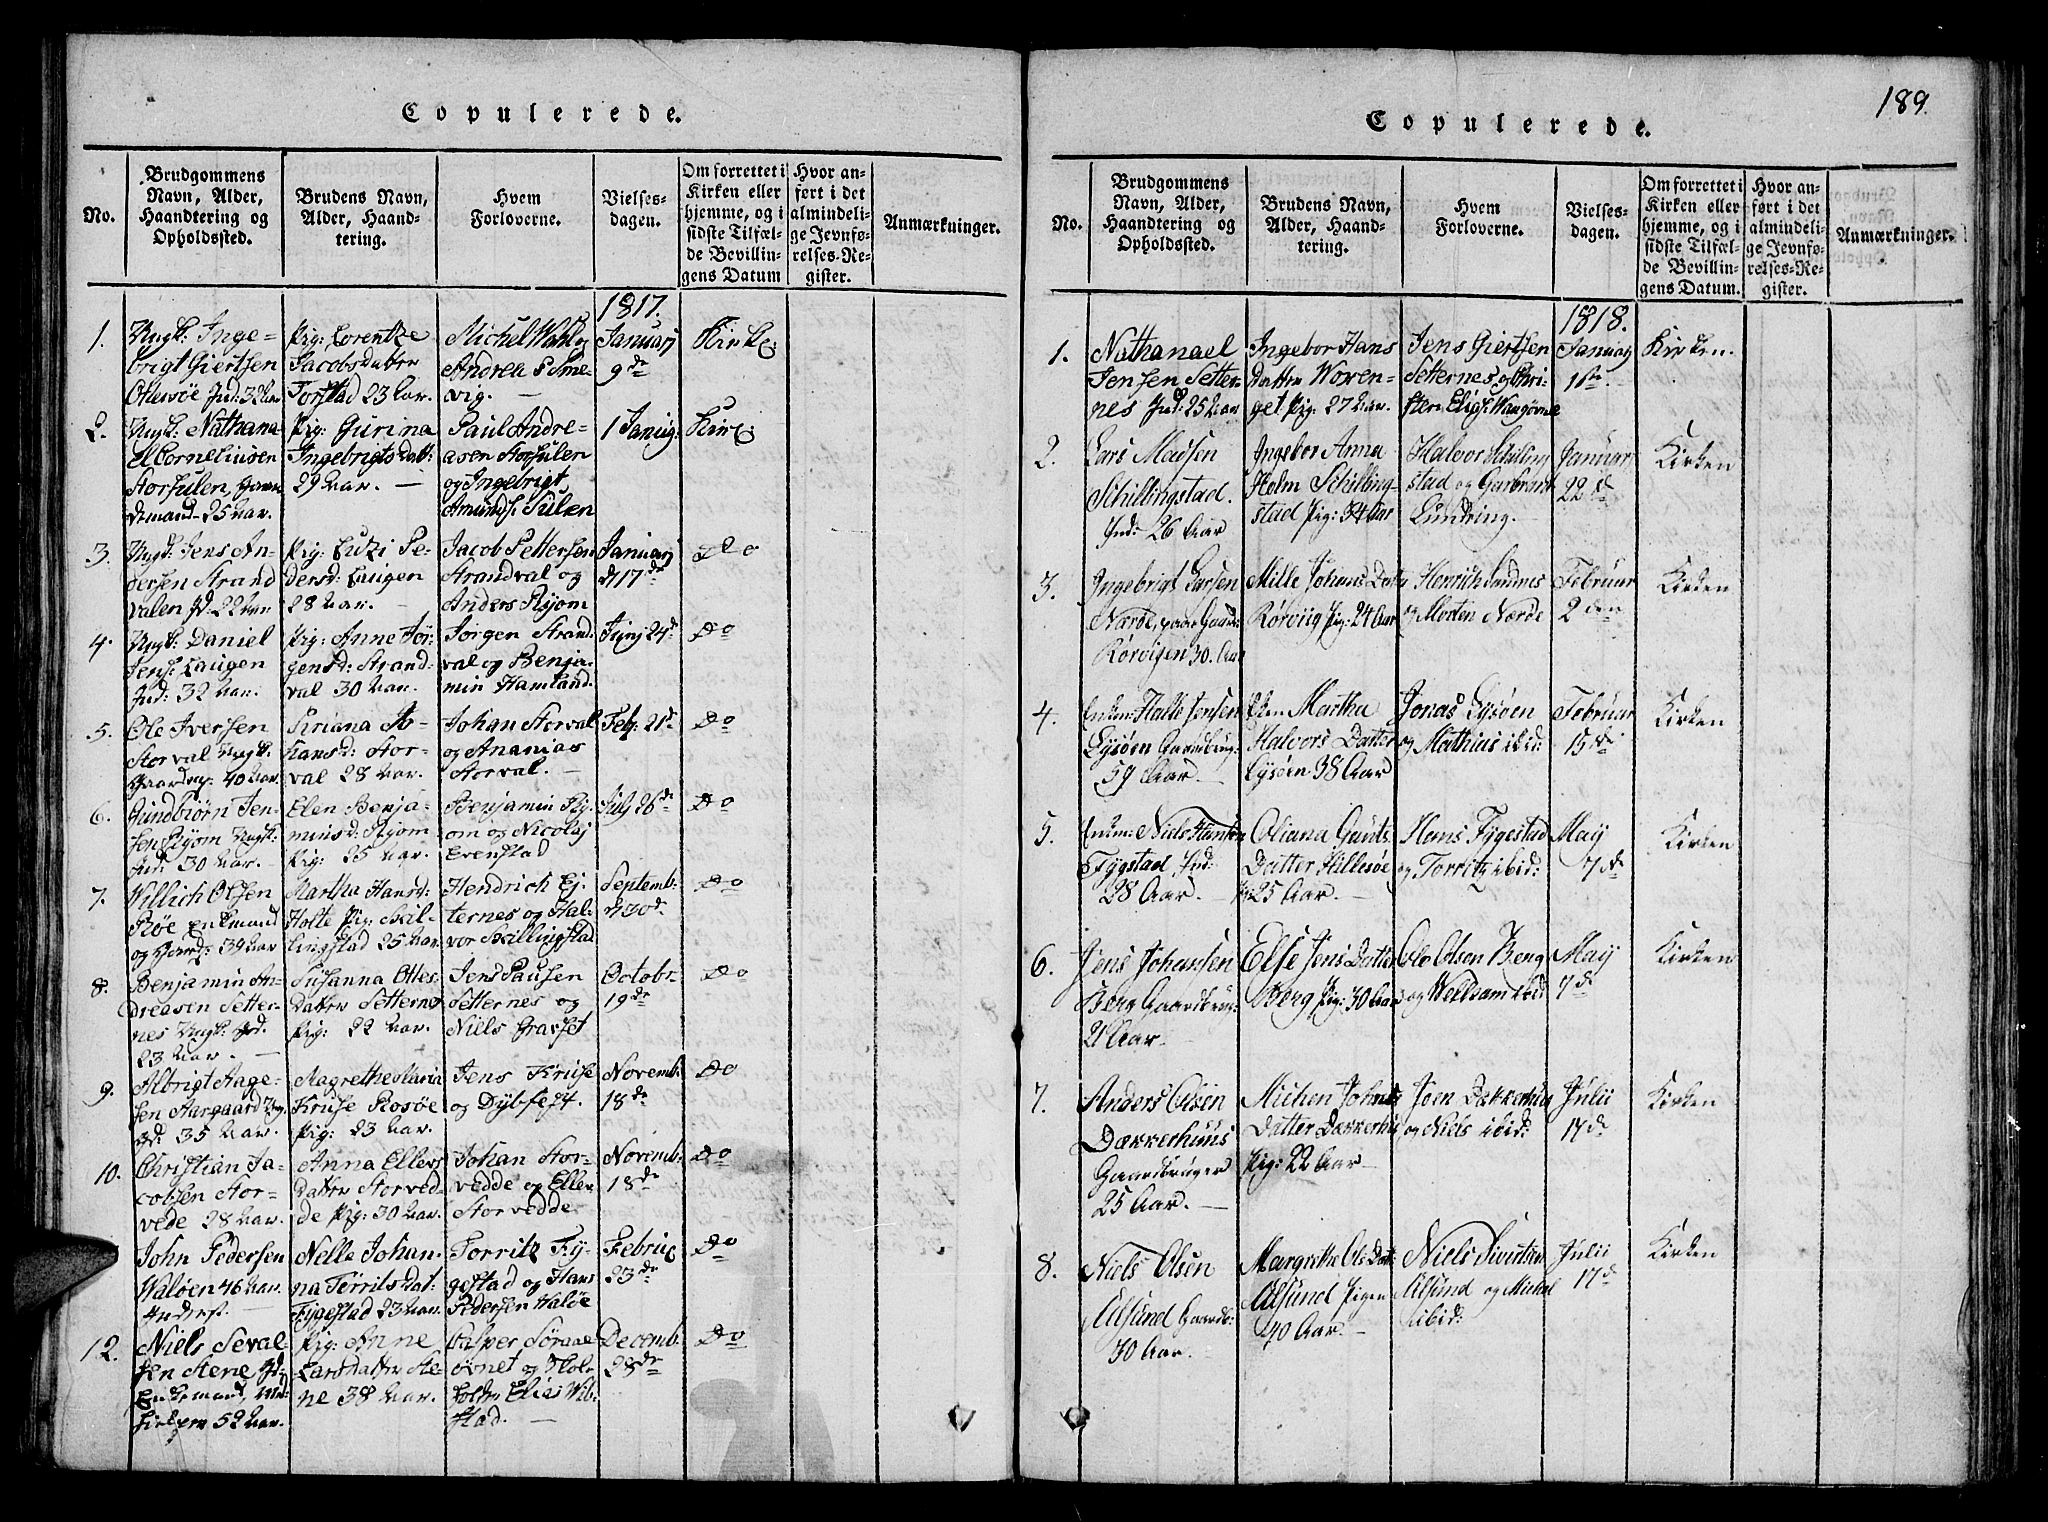 Copulerede.
No.
Brudgommens
Navn, Alder,
Haandtering og
Opholdssted.
Brudens Navn,
Alder, Haand-
tering.
Hvem
Forloverne.
Vielses-
dagen.
Om forrettet i
Kirken eller
hjemme, og i
sidste Tilfæl-
de Bevillin-
gens Datum
Hvor an-
ført i det
almindeli-
ge Jevnfø-
relses-Re-
gister.
Anmærkninger.
1817.
1.
Ungk: Inge-
brigt Giertsen
Ind: 32 Aar
Pig: Lorentze
Jacobsdatter
Torstad 23 Aar.
Michel Wahl og
Andrea S Sme-
vig. —
Januarj
9de
Kirke
2.
Ungk: Nathana
el Corneliusen
Storsulen,
demand 25 Aar.
Pig: Gurina
Ingebrigts Datt:
29 Aar. —
Paul Andre-
asen Storsulen
og Ingebrigt
Amunds: Sulen
1 Januj:
Kirke
3.
Ungk: Jens An-
dersen Strand
valen Jd. 22 Aar
Pig: Lutzi Pe-
dersd: Laugen
28 Aar.
Jacob Pettersen
Strandval og
Anders Ryom
Januarj
d 17de
Do
4.
Ungk: Daniel
Jens: Laugen
Ind: 32 Aar.
Pig: Anne Jør-
gensd: Strand-
val 30 Aar.
Jørgen Strand-
val og Benja-
min Hamland.
Junj 24d
Do
5.
Ole Iversen
Storval Ungk.
Gaardm: 40 Aar.
Kriana Jo-
hansd: Stor-
val 28 Aar.
Johan Storval
og Ananias
Storval. —
Feb: 21de
Do
6.
Gundbiørn Jen-
sen Ryom Ungk:
Ind: 30 Aar.
Elen Benja-
minsd: Ryom
Pig: 25 Aar.
Benjamin Ry-
om og Nicolaj
Evenstad
July 26de
Do
7.
Willich Olsen
Røe Enkemand
og Gaard: 39 Aar
Martha Hansd:
Holte Pig: Skil-
lingstad 25 Aar.
Hendrich Ej-
ternes og Hal-
vor Skillingstad
Septemb:
d 30d.
Do
8.
Benjamin An-
dreasen Setter-
nes Ungk: Ind.
23 Aar. —
Susanna Olles-
Datter Setternes
Pig: 22 Aar.
Jens Pausen
Setternes og
Niels Grasset
Octobr.
19de
Do
9.
Albrigt Aage-
sen Aargaard Ung
Jd. 35 Aar.
Magrethe Maria
Kruse Rosøe
Pig: 23 Aar.
Jens Kruse
og Dybfest.
Novemb:
18de
Do
10.
Christian Ja-
cobsen Stor-
vede 28 Aar.
Anna Ellevs
Datter Storved-
de Pig: 30 Aar.
Johan Stor-
vedde og Ellev
Storvedde
Novemb:
18de
Do
John Pedersen
Waløen 46 Aar
Inderst. —
Nelle Johan-
na Torrits Dat-
Fygestad 23 Aar.
Torritz Fy-
gestad og Hans
Pedersen Haløe
Februj
23de
Do
12.
Niels Seval-
sen Stene Jd:
Enkemand, Med-
hielper 52 Aar.
Pig: Anne
Larsdatter Ste-
ne 38 Aar.
Casper Søraae
øvnet og Skole-
holder Elias Wib-
stad. —
Decemb:
28de
Do
Copulerede.
189.
No.
Brudgommens
Navn, Alder,
Haandtering og
Opholdssted.
Brudens Navn,
Alder, Haand-
tering.
Hvem
Forloverne.
Vielses-
dagen.
Om forrettet i
Kirken eller
hjemme, og i
sidste Tilfæl-
de Bevillin-
gens Datum.
Hvor an-
ført i det
almindeli-
ge Jevnfø-
relses-Re-
gister.
Anmærkninger.
1818.
1.
Nathanael
Jensen Setter-
nes Ind: 25 Aar
Ingebor Hans
Datter Woxen-
get Pig: 27 Aar.
Jens Giertsen
Setternes, og Chri-
sten Elias:
Januarj
1ste
Kirken.
2.
Lars Madsen
Schillingstad.
Ind: 26 Aar
Ingebor Anna
Holm Schilling-
stad Pig: 34 Aar
Halvor Schiling
stad og
Lundring.
Januar
22de
Kirken
3.
Ingebrigt Larsen
Nærde, paa Gaard
Rørvigen 30. Aar
Mille Johans Datter
Rørviig Pig: 24 Aar
Henrich Sandnes
og Morten Nærde
Februar
2den
Kirken
4.
Enkem: Halle Jensen
Lysøen Gaardbrug:
59 Aar.
Eken Martha
Halvors Datter
Lysøen 38 Aar
Jonas Lysøen
og Mathias ibid:
Februar
15de
Kirken
5.
Enkem: Niels Hansen
Fygstad Ind:
28 Aar. —
Oliana Gauts
Datter Hillesøe
Pig 25 Aar. —
Hans Fygestad
og Torritz ibid:
May
7de
Kirken
6.
Jens Johansen
Berg Gaardbrug:
21 Aar —
Else Jens Datter
Berg Pig: 30 Aar
Ole Olsen Berg
og Wellsam ibid
May
7de
Kirken
7.
Anders Olsen
Dækkerhuus
Gaardbruger
25 Aar. —
Michen Johns
Datter Dækkerhus
Pig: 22 Aar —
Joen Dækkerhus
og Niels ibid:
Julii
17de
Kirken
8.
Niels Olsen
Alsund Gaardb:
30 Aar.
Margrethe Ols Datt:
Alsund Pigen
40 Aar. —
Niels Sivertsen
Alsund og Michal
ibid:
Julii
17d
Kirken